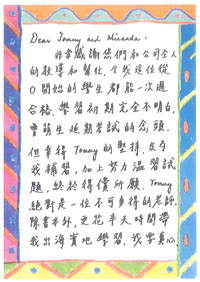 Dear Tommy and Miranda:
非常感謝您們和公司全人
的教導和幫忙,令我這位從
0開始的學生都能一次過
合格.學習初期完全不明白,
曾萌生延期考試的念頭.
但幸得Tommy的堅持,及令
我補習,加上努力溫習試
題,終於得償所願.Tommy
絕對是一位不可多得的老師,
除書本外,更花半天時間帶
我出海實地學習,我要真心